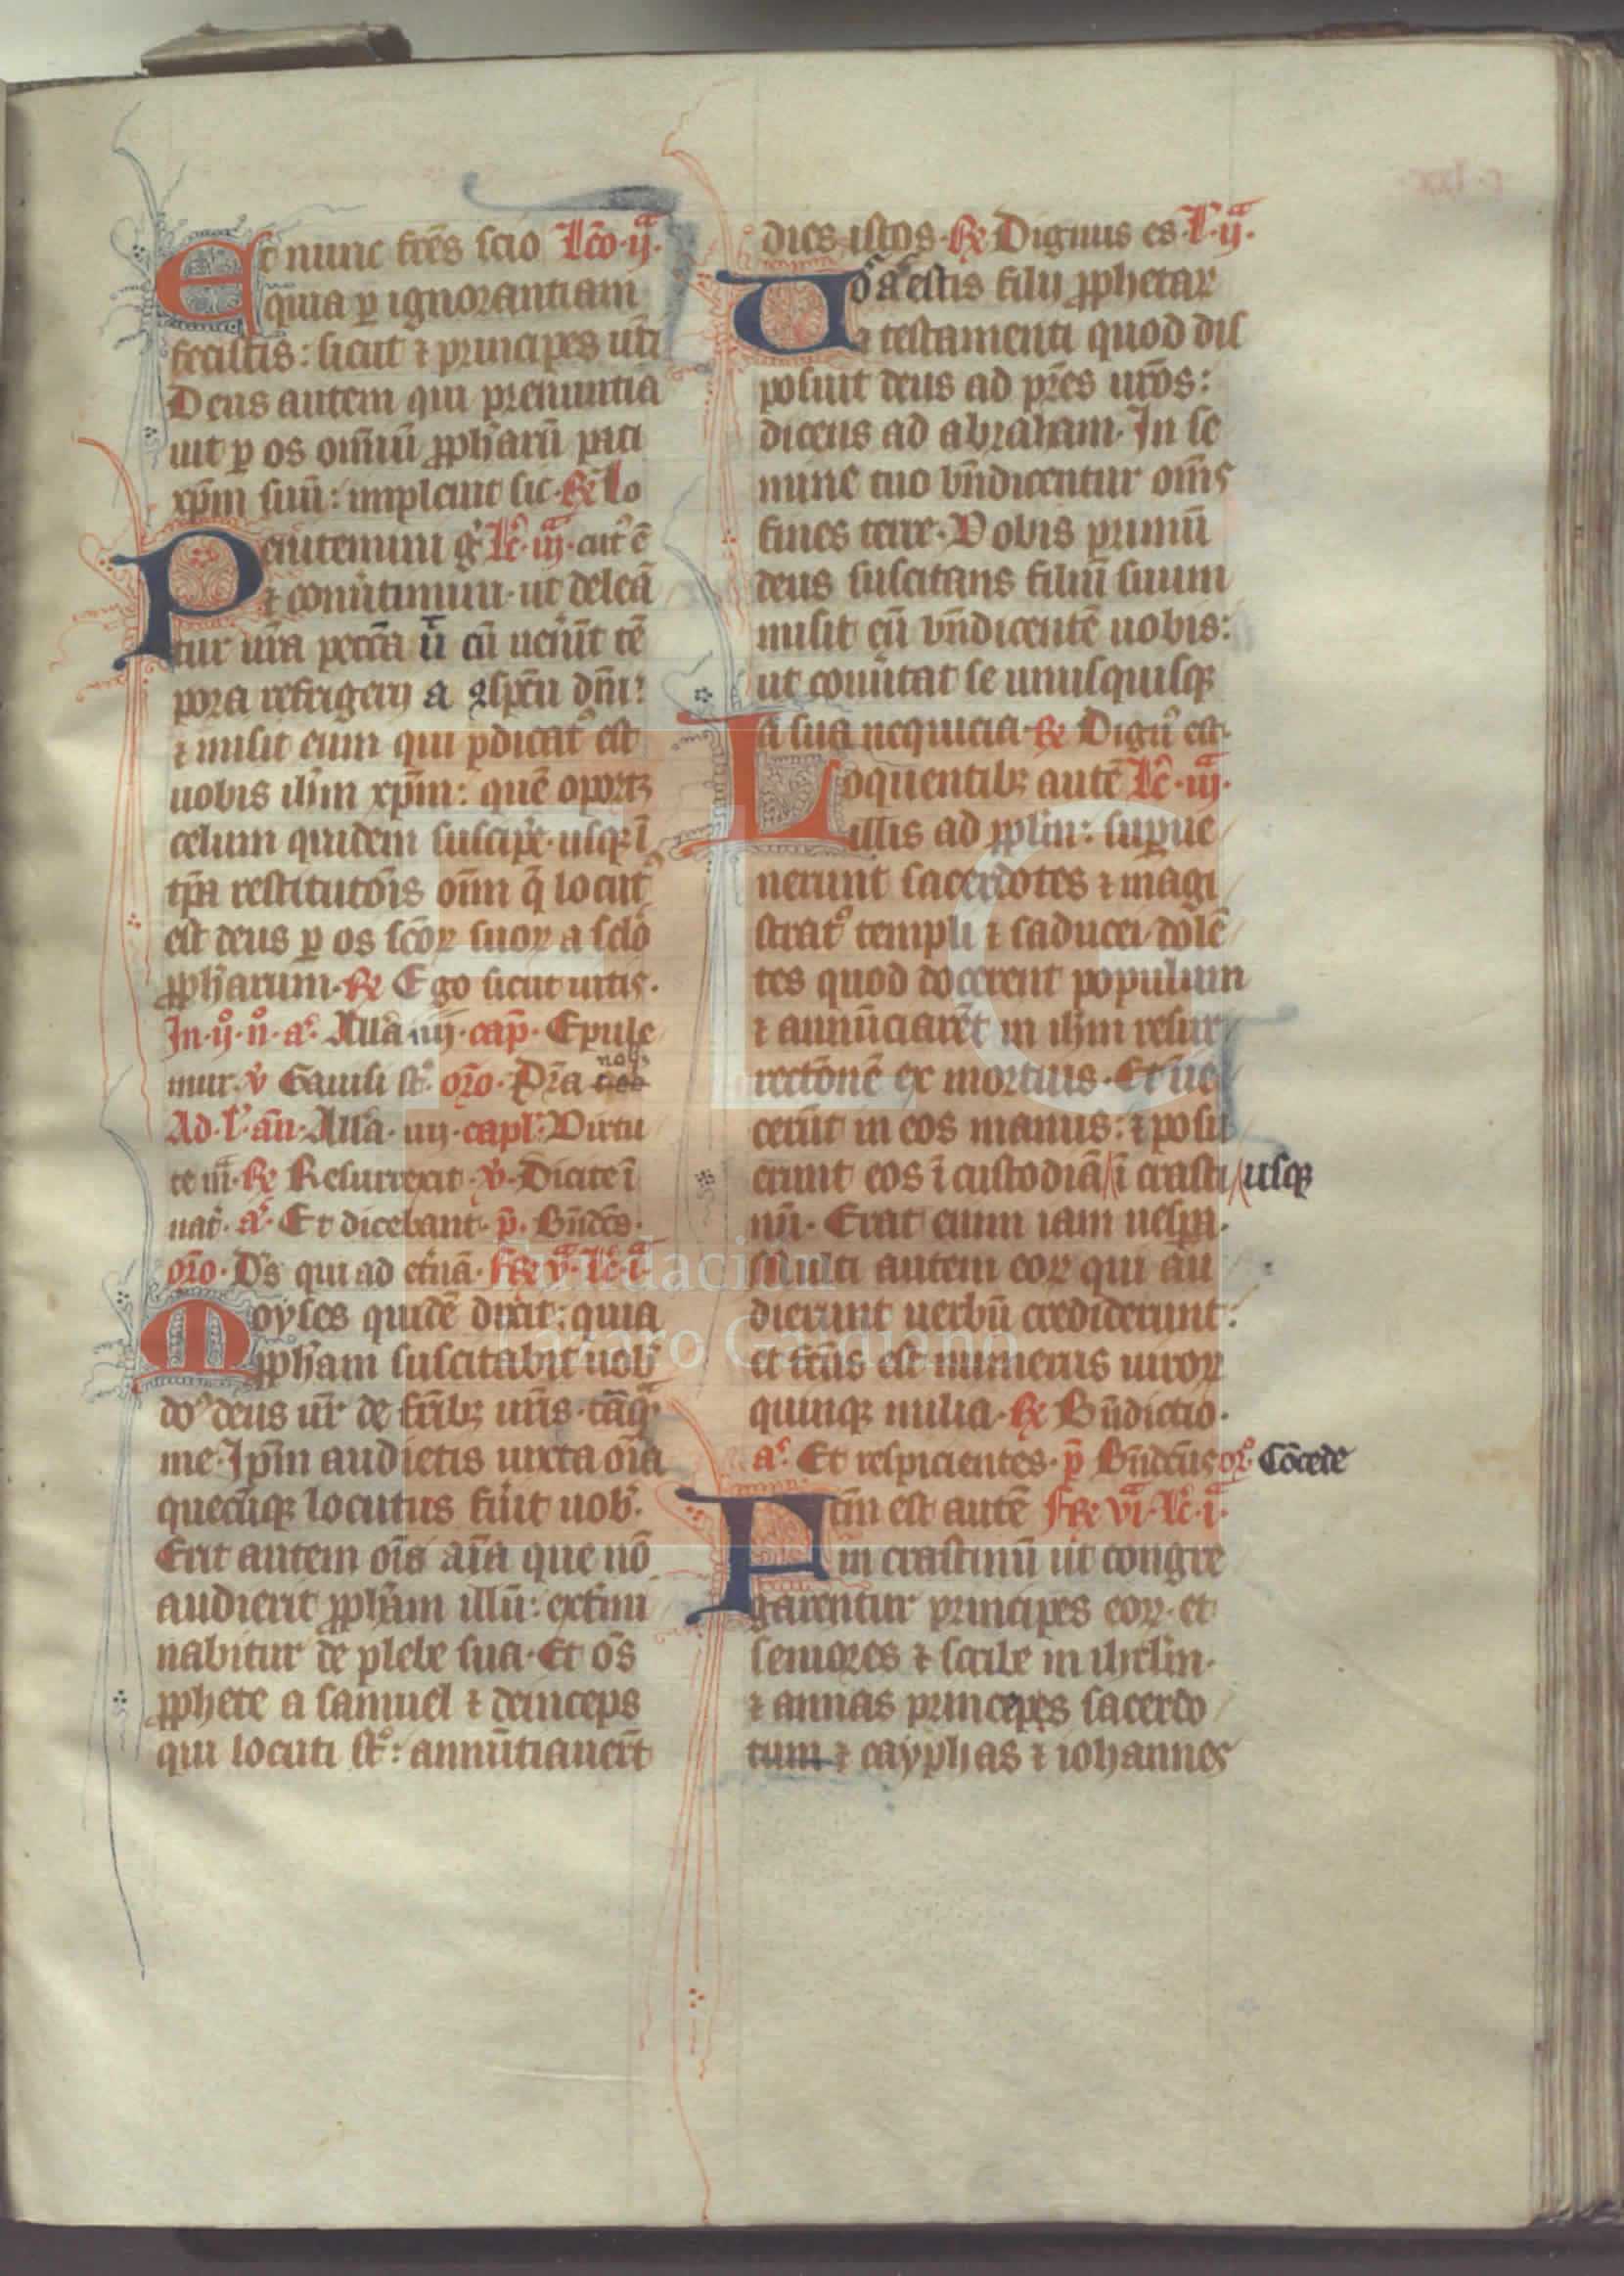 Et nunc fr̄es scio l̄co·ij·ͣ
quia ꝑ ignorantiam
fecistis: sicut ⁊ principes ur̄i
Deus autem qui prenuntia
uit ꝑ os om̄iū ꝓph̄arū pati
xp̄m suū: impleuit sic· R̄ Lo
Penitemini gͥ l̄c· iijͣ· cutꝰ ē
⁊ conu̾timini· ut deleā
tur ur̄a pecc̄a ut̄ cū uen̾īt tē
pora refrigerij a ꝯspc̄u dn̄i:
⁊ misit eum qui p̄dicatꝰ est
uobis ih̄m xp̄m: quē oportꝫ
celum quidem suscipe̾· usqꝫ ī
tp̄a restituto̅is om̄m q̄ locutꝰ
est deus ꝑ os sc̄oꝝ suoꝝ a scl̄o
ꝓph̄arum· R̄ Ego sicut uitis·
In· ijͦ· nͦ· a᷑· Allā iiij· cap̄· Epule
mur· v̾ Gauisi st̄· or̄o· Pr̄a nob̾
Ad· l᷑· an̄· Allā· iiij· capl᷑· Virtu
te m̄· R̄ Resurrexit· v̾· Dicite ī
nat̾· a᷑· Et dicebant· p̄· Bn̄dc̄s·
or̄o· D̾s qui ad et̾nā· Fr̄ vͣ· l̄c· īͣ
Moyses quidē dixit: quia
ꝓph̄am suscitabit uob̾
do᷑ deus ur̄ de fr̄ibꝫ ur̄is· tāqͣ
me· Ip̄m audietis iuxta oīa
quecūqꝫ locutus fu̾it uob̾·
Erit autem oīs aīa que nō
audierit ꝓph̄am illū: ext̾mi
nabitur de plebe sua· Et os̄
ꝓphete a samuel ⁊ deinceps
qui locuti st̄: annūtiauer̄t
dies istos· R̄ Dignus es· l᷑·ij·ͣ
Uos estis filij ꝓphetaꝝ
⁊ testamenti quod dis
posuit deus ad pr̄es ur̄os:
dicens ad abraham· In se
mine tuo bn̄dicentur om̄s
fines terre· Vobis primū
deus suscitans filiū suum
misit eū bn̄dicentē uobis:
ut conu̾tat se unusquisqꝫ
a sua nequicia· R̄ Dign᷑ est·
Loquentibꝫ autē l̄c· iijͣ·
illis ad ppl̄m: suꝑue
nerunt sacerdotes ⁊ magi
stratꝰ templi ⁊ saducei dolē
tes quod docerent populum
⁊ annūciarēt in ih̄m resur
rectōnē ex mortuis· Et iie
cerūt in eos manus: ⁊ posu
erunt eos ī custodiā / ī crasti / usqꝫ
nū· Erat enim iam uesꝑa·
Multi autem eoꝝ qui au
dierunt uerbū crediderunt:
et fc̄us est numerus uiroꝝ
quinqꝫ milia· R̄ Bn̄dictio·
a᷑· Et respicientes· p̄ Bn̄dc̄us orͦ· Cōcede
Fc̄m est autē Fr̄ viͣ· l̄c· īͣ·
in crastinū ut congre
garentur principes eoꝝ· et
seniores ⁊ scribe in ihrl̄m·
⁊ annas princeps sacerdo
tum ⁊ cayphas ⁊ iohannes
Fundación
Lázaro Galdiano